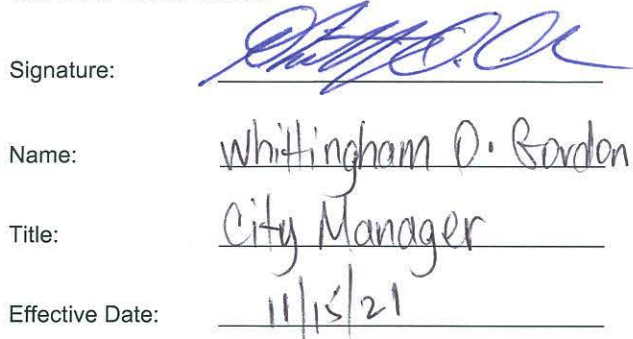 Signature:
Name: Whittingham O. Gordon
Title: City Manager
Effective Date: 11/15/21